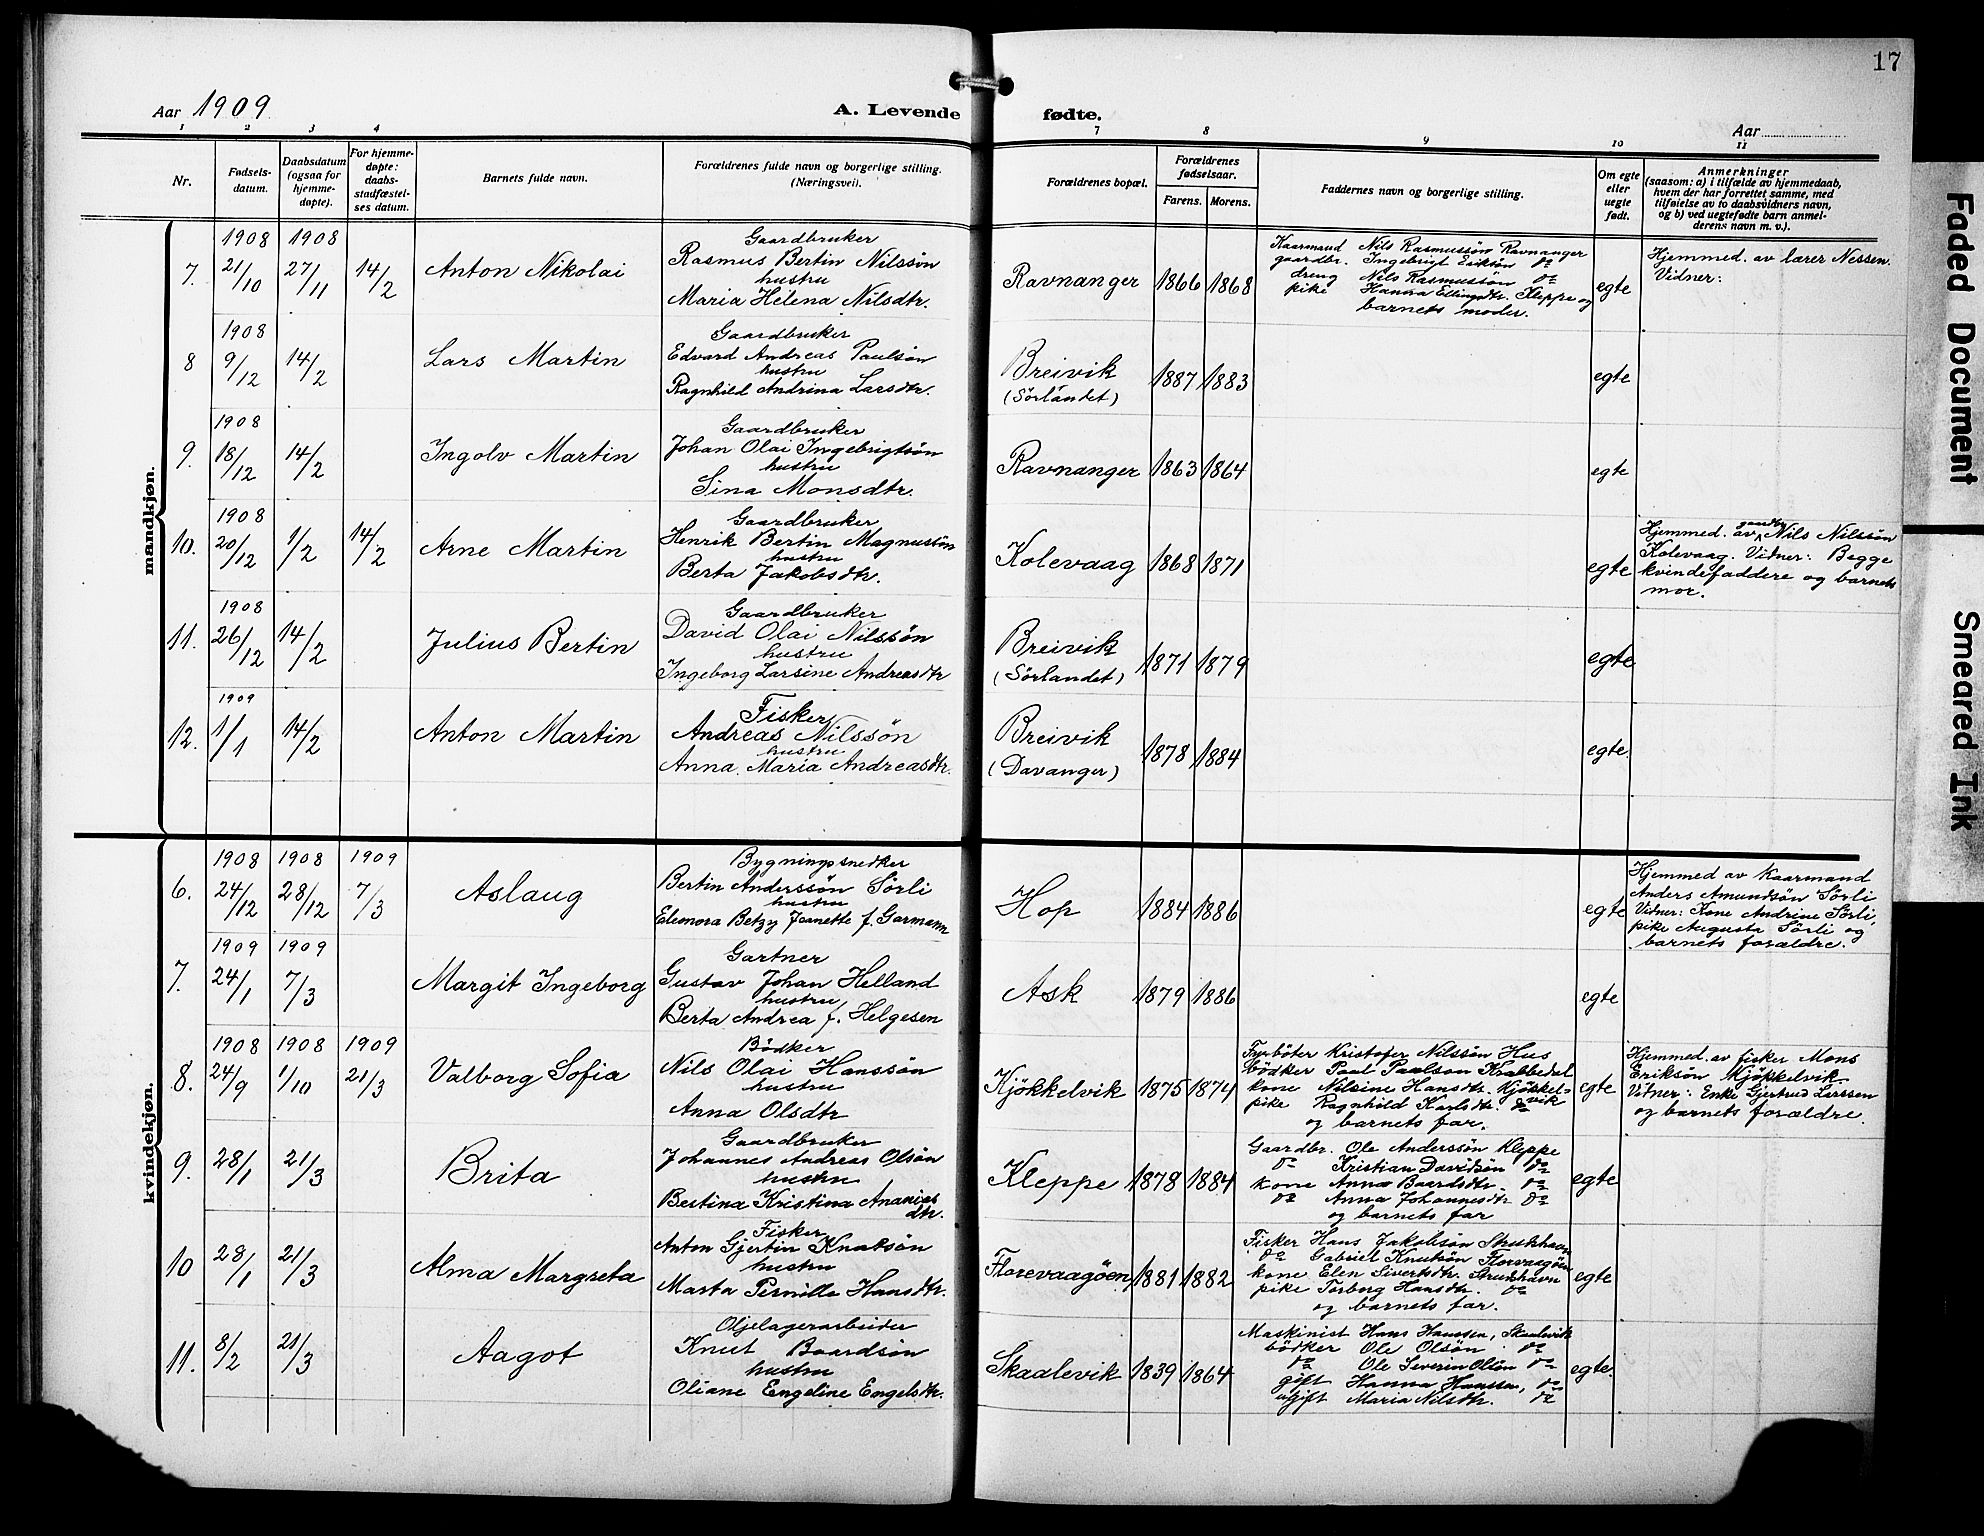 17
Aar 1909
A. Levende fødte.
Aar
1 2 3 4 7 8 9 10 11
Nr.
Fødsels-
datum.
Daabsdatum
(ogsaa for
hjemme-
døpte).
For hjemme-
døpte:
daabs-
stadfæstel-
ses datum.
Barnets fulde navn.
Forældrenes fulde navn og borgerlige stilling.
(Næringsvei).
Forældrenes bopæl.
Forældrenes
fødselsaar.
Farens. Morens.
Faddernes navn og borgerlige stilling.
Om egte
eller
uegte
født.
Anmerkninger
(saasom: a) i tilfælde av hjemmedaab,
hvem der har forrettet samme, med
tilføielse av to daabsvidners navn,
og b) ved uegtefødte barn anmel-
derens navn m. v.).
mandkjøn.
7.
1908
21/10
1908
27/11
14/2
Anton Nikolai
Gaardbruker
Rasmus Bertin Nilssøn
hustru
Maria Helena Nilsdtr.
Ravnanger
1866 1868
Kaarmand Nils Rasmussøn Ravnanger
gaardbr. Ingebrigt Eriksøn do
dreng Nils Rasmussøn do
pike Hanna Ellingsdtr. Kleppe og
barnets moder.
egte
Hjemmed. av lærer Nessen.
Vidner:
8
1908
9/12
14/2
Lars Martin
Gaardbruker
Edvard Andreas Paulsøn
hustru
Ragnhild Andrina Larsdtr.
Breivik
(Sørlandet)
1887 1883
egte
9.
1908
18/12
14/2
Ingolv Martin
Gaardbruker
Johan Olai Ingebrigtsøn
hustru
Sina Monsdtr.
Ravnanger
1863 1864
egte
10.
1908
20/12
1/2
14/2
Arne Martin
Gaardbruker
Henrik Bertin Magnussøn
hustru
Berta Jakobsdtr.
Kolevaag
1868 1871
egte
Hjemmed. av gaardbr. Nils Nilssøn
Kolevaag. Vidner: Begge
kvindefaddere og barnets
mor.
11.
1908
26/12
14/2
Julius Bertin
Gaardbruker
David Olai Nilssøn
hustru
Ingeborg Larsine Andreasdtr
Breivik
(Sørlandet)
1871 1879
egte
12.
1909
1/1
14/2
Anton Martin
Fisker
Andreas Nilssøn
hustru
Anna Maria Andreasdtr.
Breivik
(Davanger)
1878 1884
egte.
kvindekjøn.
6.
1908
24/12
1908
28/12
1909
7/3
Aslaug
Bygningssnedker
Bertin Anderssøn Sørli
hustru
Eleonora Betzy Jeanette f. Garmann
Hop
1884 1886
egte
Hjemmed av Kaarmand
Anders Amundsøn Sørli
Vidner: Kone Andrine Sørli,
pike Augusta Sørli og
barnets forældre.
7.
1909
24/1
1909
7/3
Margit Ingeborg
Gartner
Gustav Johan Helland
hustru
Berta Andrea f. Helgesen
Ask
1879 1886
egte
8.
1908
24/9
1908
1/10
1909
21/3
Valborg Sofia
Bödker
Nils Olai Hanssøn
hustru
Anna Olsdtr
Kjökkelvik
1875 1874
Fyrböter Kristofer Nilssøn Hus
bödker Paul Paulson Krabbedal
kone Nilsine Hansdtr. Kjökkel=
vik
pike Ragnhild Karlsdtr. do
og barnets far.
egte
Hjemmed. av fisker Mons
Eriksön Kjökkelvik
Vitner: Enke Gjertrud Larssen
og barnets forældre.
9.
28/1
21/3
Brita
Gaardbruker
Johannes Andreas Olsøn
hustru
Bertina Kristina Ananias
dtr.
Kleppe
1878 1884
Gaardbr. Ole Anderssøn Kleppe
do Kristian Davidsøn do
kone Anna Baardsdtr. do
do Anna Johannesdtr do
og barnets far
egte
10
28/1
21/3
Alma Margreta
Fisker
Anton Gjertin Knutsøn
hustru
Marta Pernille Hansdtr.
Florevaagøen
1881 1882
Fisker Hans Jakobsøn Strushavn
do Gabriel Knutsøn Florvaagøen
kone Elen Sivertsdtr. Strushavn
pike Torborg Hansdtr. do
og barnets far.
egte
11.
8/2
21/3
Aagot
Oljelagerarbeider
Knut Baardsøn
hustru
Oliane Engeline Engelsdtr.
Skaalevik
1839 1864
Maskinist Hans Hanssen, Skaalevik
bödker Ole Olsøn do
do Ole Severin Olsøn do
gift Hanna Hanssen, do
ugift Maria Nilsdtr. do
egte.
Faded Document
Smeared Ink